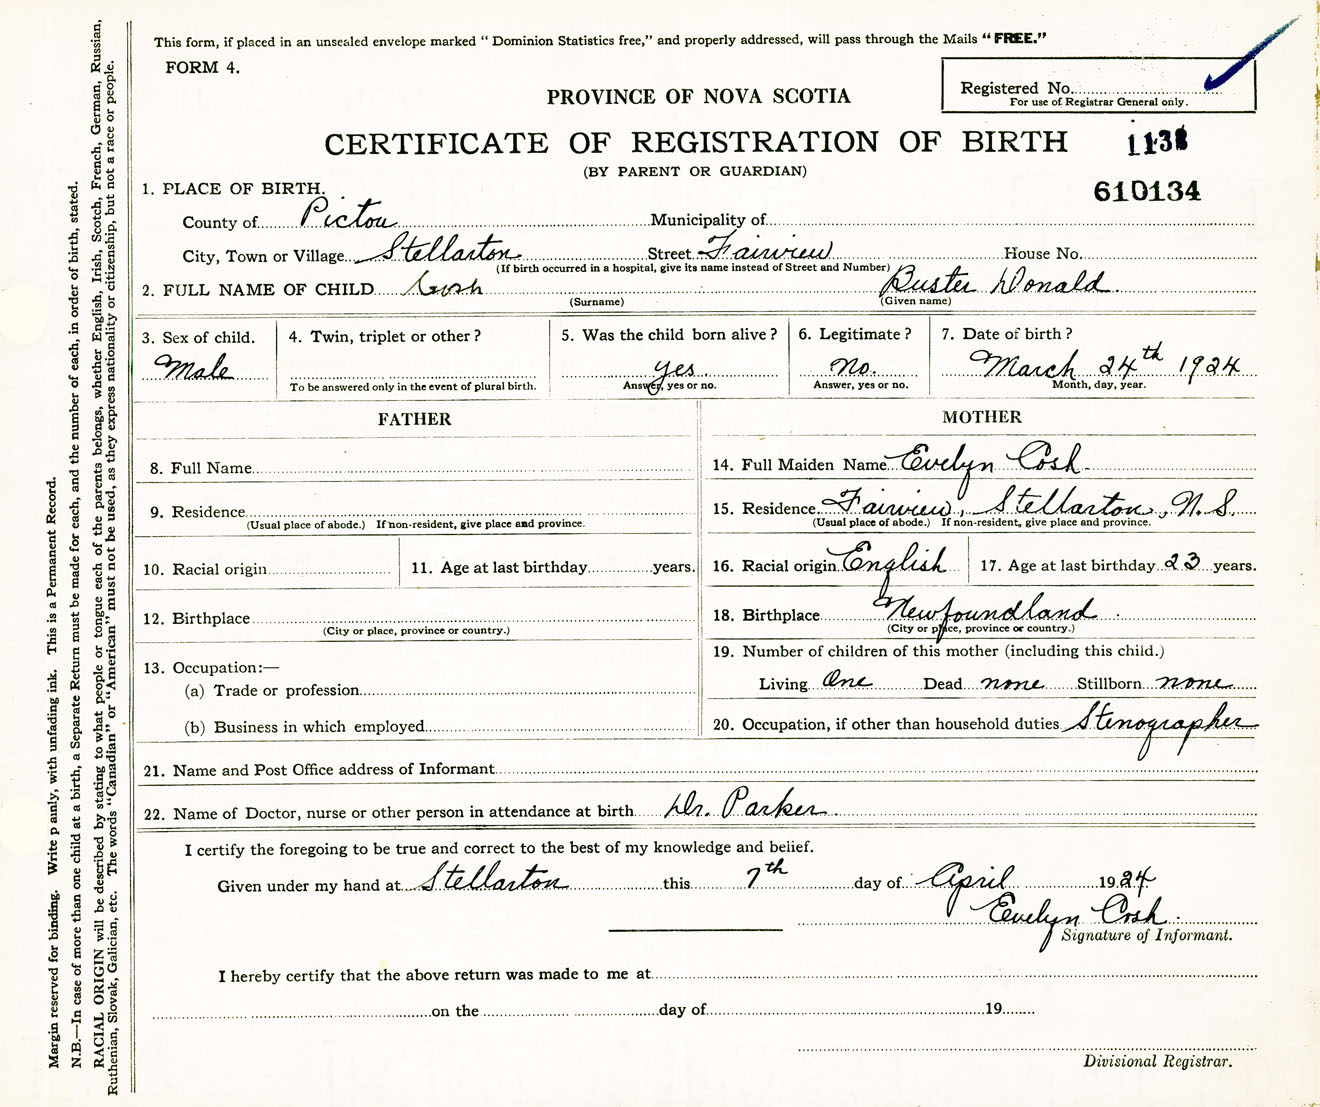 This form, if placed in an unsealed envelope marked “ Dominion Statistics free,” and properly addressed, will pass through the Mails “ FREE.”
FORM 4.
Registered No.
For use of Registrar General only.
PROVINCE OF NOVA SCOTIA
CERTIFICATE OF REGISTRATION OF BIRTH
(BY PARENT OR GUARDIAN)
610134
1. PLACE OF BIRTH.
County of Pictou Municipality of
City, Town or Village Stellarton Street Fairview House No.
(If birth occurred in a hospital, give its name instead of Street and Number)
2. FULL NAME OF CHILD Cosh Buster Donald.
(Surname) (Given name)
3. Sex of child. 4. Twin, triplet or other ? 5. Was the child born alive ? 6. Legitimate ? 7. Date of birth ?
Male yes. No. March 24th 1924
To be answered only in the event of plural birth. Answer, yes or no. Answer, yes or no. Month, day, year.
FATHER
8. Full Name
9. Residence
(Usual place of abode.) If non-resident, give place and province.
10. Racial origin 11. Age at last birthday years.
12. Birthplace
(City or place, province or country.)
13. Occupation:—
(a) Trade or profession
(b) Business in which employed
MOTHER
14. Full Maiden Name Evelyn Cosh.
15. Residence. Fairview, Stellarton, N.S.
(Usual place of abode.) If non-resident, give place and province.
16. Racial origin English 17. Age at last birthday 23 years.
18. Birthplace Newfoundland .
(City or place, province or country.)
19. Number of children of this mother (including this child.)
Living One Dead none Stillborn none
20. Occupation, if other than household duties Stenographer
21. Name and Post Office address of Informant
22. Name of Doctor, nurse or other person in attendance at birth Dr. Parker.
I certify the foregoing to be true and correct to the best of my knowledge and belief.
Given under my hand at Stellarton this 7th day of April 1924
Evelyn Cosh.
Signature of Informant.
I hereby certify that the above return was made to me at
on the day of 19
Divisional Registrar.
Margin reserved for binding. Write p ainly, with unfading ink. This is a Permanent Record.
N.B.—In case of more than one child at a birth, a Separate Return must be made for each, and the number of each, in order of birth, stated.
RACIAL ORIGIN will be described by stating to what people or tongue each of the parents belongs, whether English, Irish, Scotch, French, German, Russian,
Ruthenian, Slovak, Galician, etc. The words “Canadian” or “American” must not be used, as they express nationality or citizenship, but not a race or people.